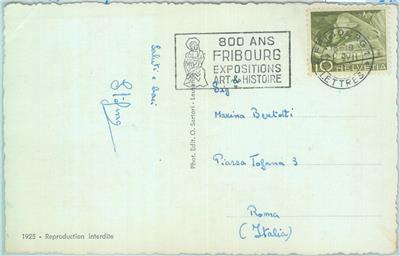 800 ANS
FRIBOURG
EXPOSITIONS
ART & HISTOIRE
LETTRES
HELVETIA
Saluti e baci
Phot. Edit. O. Sartori -
Marina Bertoni
Piazza Tofana 3
Roma
(Italia)
1925 - Reproduction interdite